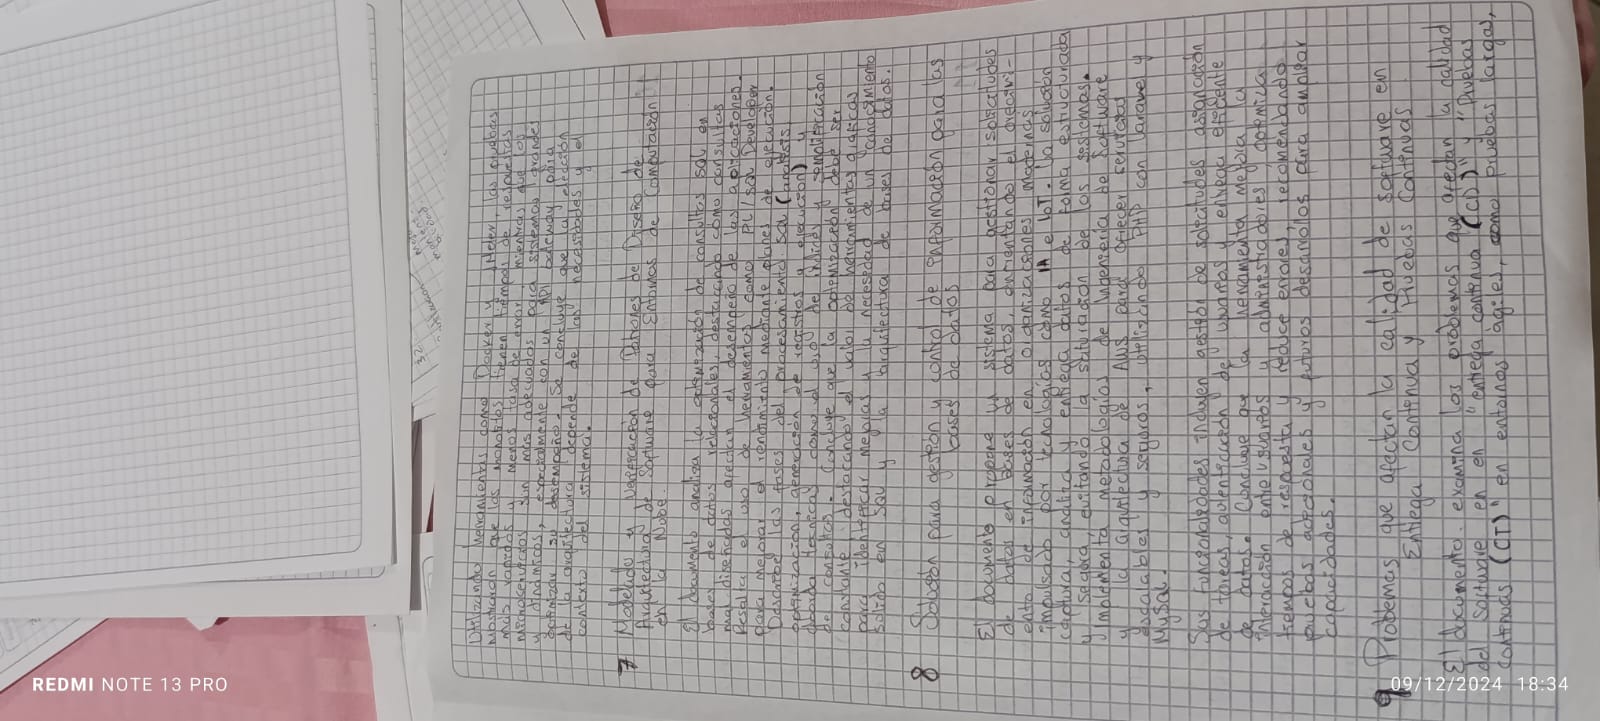 Utilizando herramientas como Docker y Heler, las pruebas
muestran que los monolitos tienen tiempos de respuestas
más rápidos y menos tasa de error, mientras que los
microservicios son más adecuados para sistemas grandes
y dinámicos, especialmente con un API Gateway para
optimizar su desempeño. Se concluye que la elección
de la arquitectura depende de las necesidades y el
contexto del sistema.
7 Modelado y Verificación de Patrones de Diseño de
Arquitectura de Software para Entornos de Computación
en la Nube.
El documento analiza la optimización de consultas SQL en
bases de datos relacionales, destacando como consultas
mal diseñadas afectan el desempeño de las aplicaciones.
Resalta el uso de herramientas como PL/SQL Developer
para mejorar el rendimiento mediante planes de ejecución.
Describe las fases del procesamiento SQL (análisis,
optimización, generación de registros y ejecución) y
técnicas como el uso de índices y simplificación
de consultas. Concluye que la optimización debe ser
constante, destacando el valor de herramientas gráficas
para identificar mejoras y la necesidad de un conocimiento
solido en SQL y la arquitectura de bases de datos.
8 Solución para gestión y control de información para las
bases de datos
El documento propone un sistema para gestionar solicitudes
de datos en bases de datos, enfrentando el
ento de información en organizaciones modernas
impulsado por tecnologías como IA e IoT. La solución
captura, analiza y entrega datos de forma estructurada
y segura, evitando la saturación de los sistemas.
y implementa metodologías de Ingeniería de Software
y la arquitectura de AWS para ofrecer servicios
escalables y seguros, utilizando PHP con Laravel y
MySQL.
Sus funcionalidades incluyen gestión de solicitudes asignación
de tareas, autenticación de usuarios y entrega eficiente
de datos. Concluye que la herramienta mejora la
interacción entre usuarios y administradores, optimiza
tiempos de respuesta y reduce errores, recomendando
pruebas adicionales y futuros desarrollos para ampliar
capacidades.
9 Problemas que afectan la calidad de software en
Entrega Continua y Pruebas Continuas
El documento examina los problemas que afectan la calidad
del software en "entrega continua (CD)" y "Pruebas
continuas (CT)" en entornos ágiles, como pruebas largas,
REDMI NOTE 13 PRO
09/12/2024 18:34